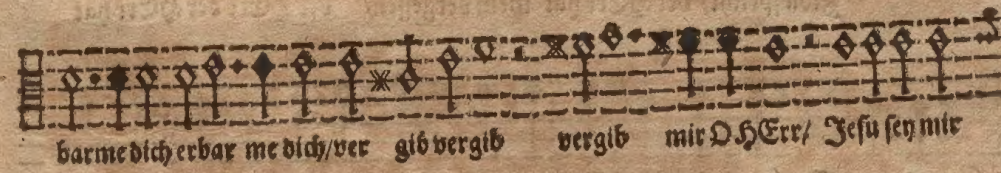 barme dich erbar me dich/ver gib vergib vergib mir O HErr/ Jesu sey mir